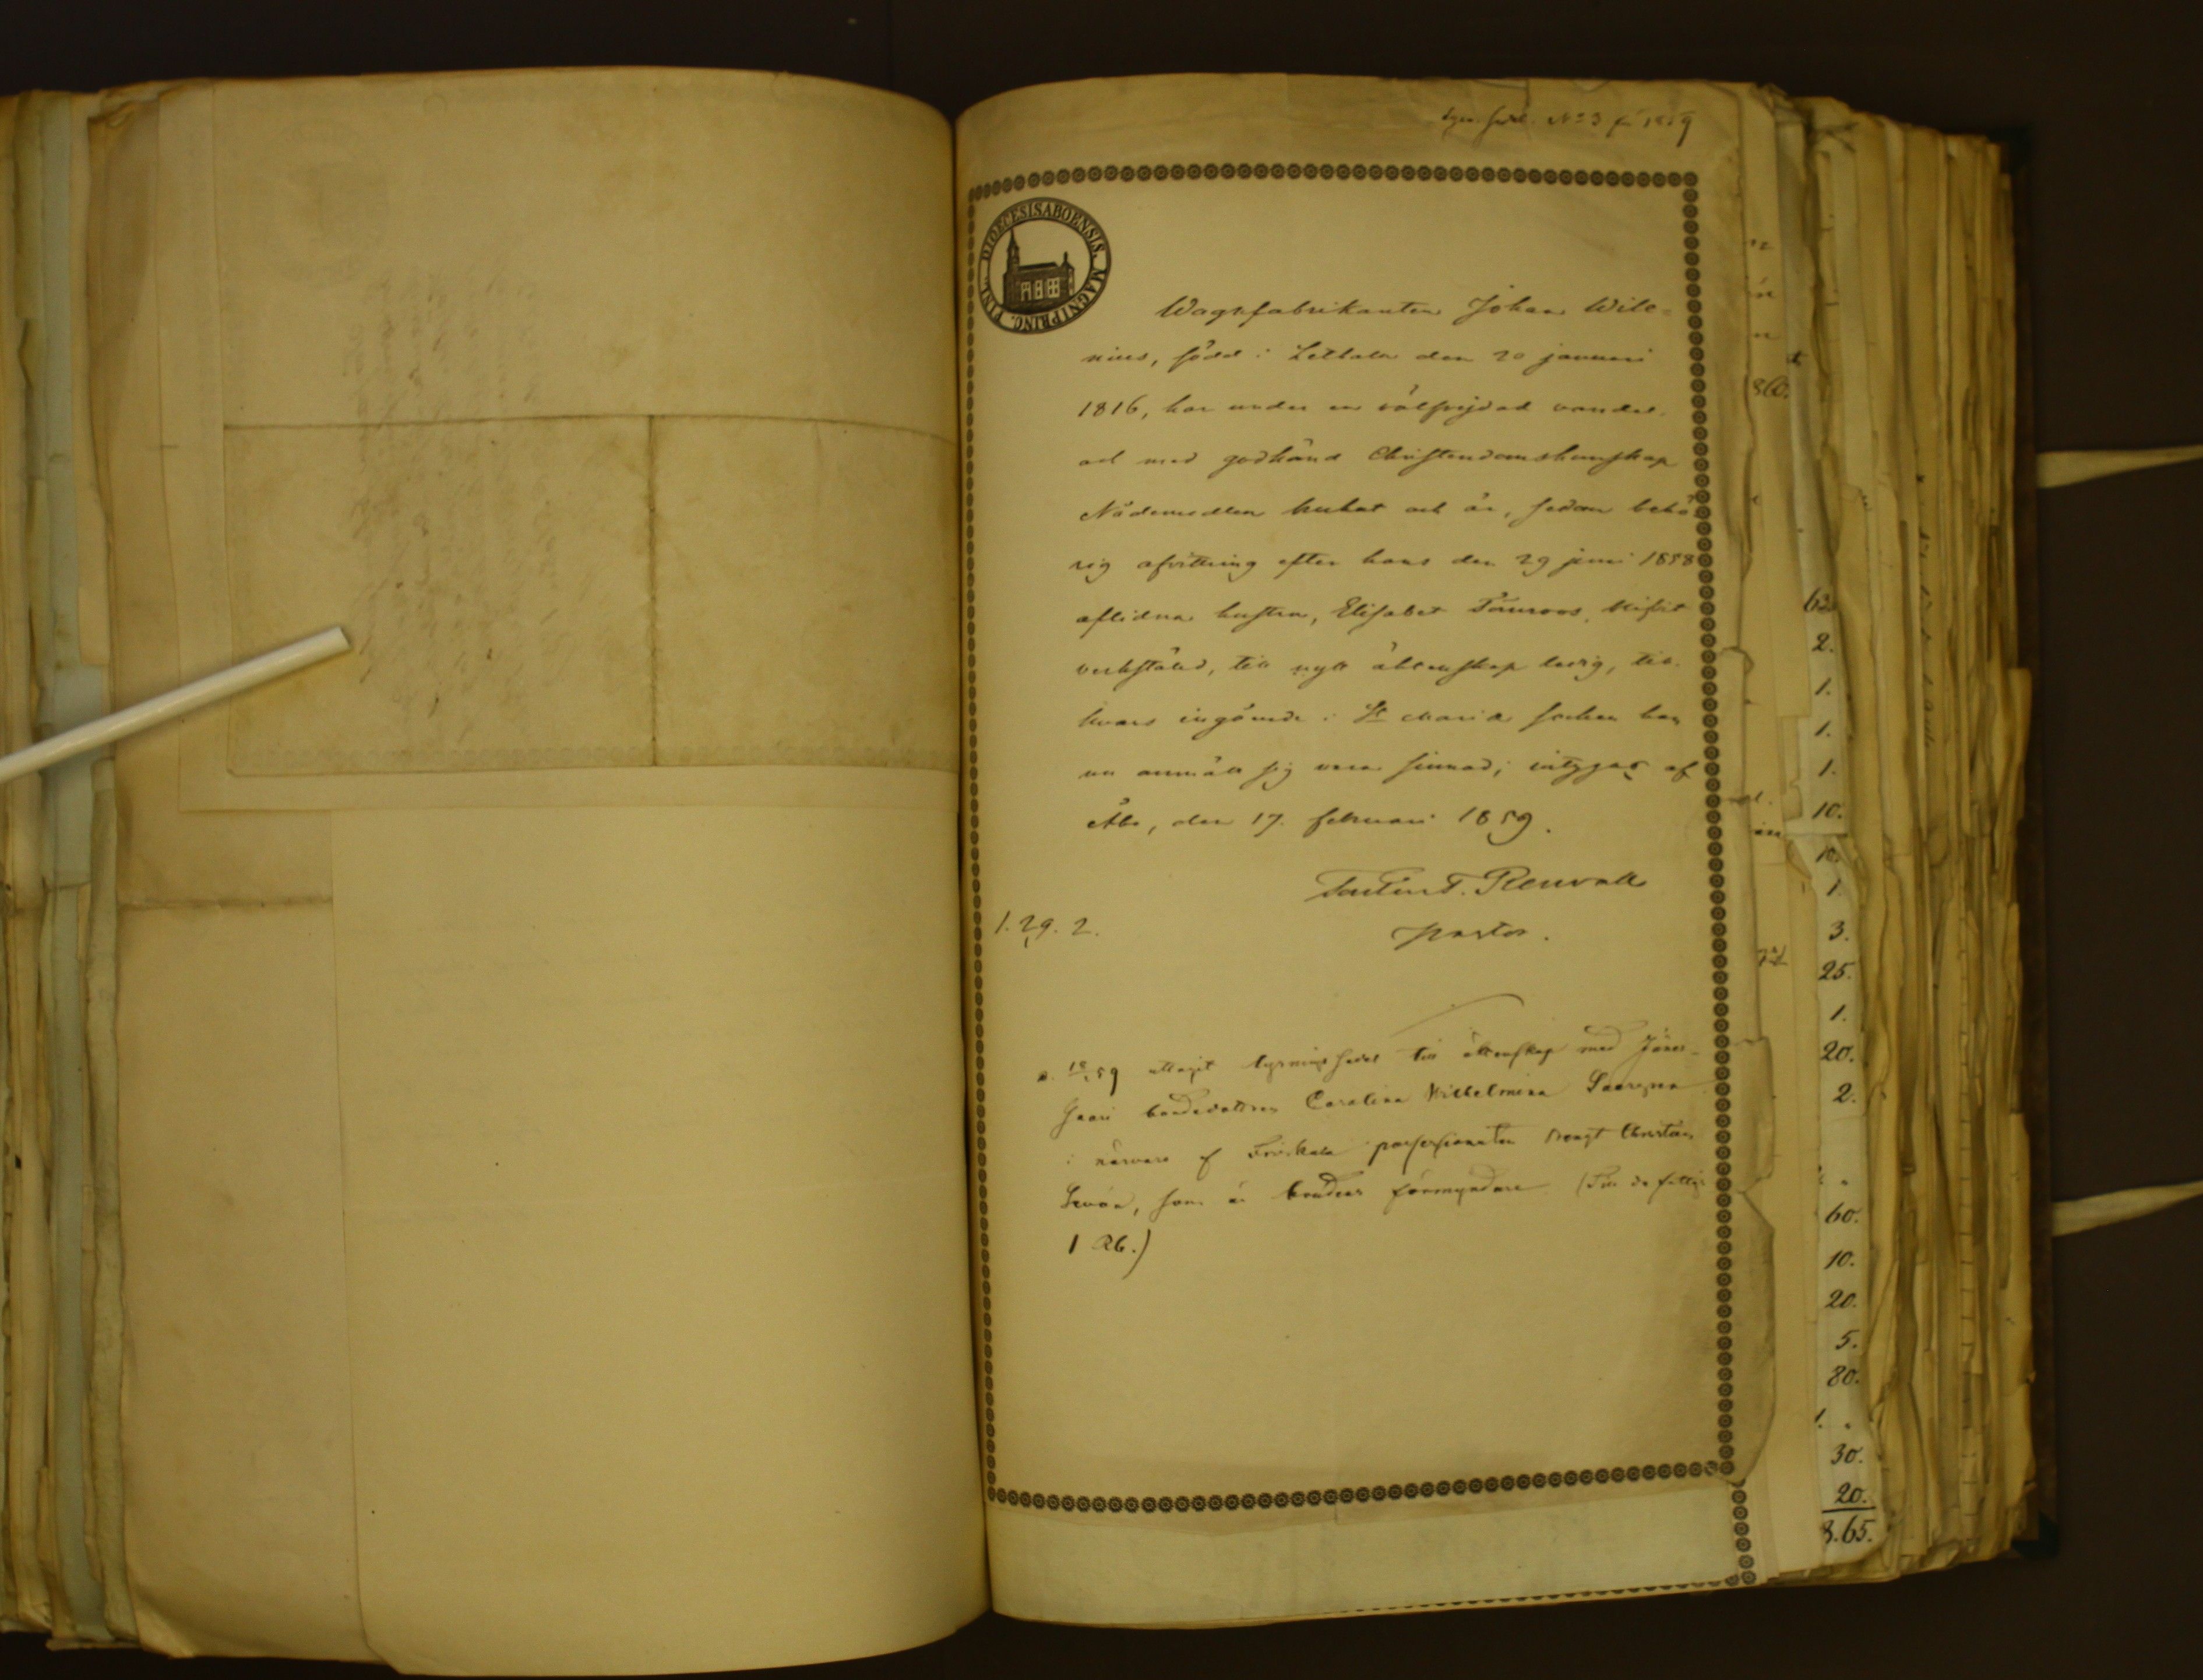 Lysn. sedl. No 3 för 1859
DIOECESIS ABOENSIS. MAGNI PRINC. FINL.
Wagnfabrikanten Johan Wile-
nius, född i Letala den 20 januari
1816, har under en välfrejdad vandel
och med godkänd Christendomskunskap
Nådemedlen brukat och är, sedan behö-
rig afvittring efter hans den 29 juni 1858
aflidna hustru, Elisabet Törnroos, blifvit
verkstäld, till nytt äktenskap ledig, till
hvars ingående i St Mariæ socken han
nu anmält sig vara sinnad; intygas af
Åbo, den 17. februari 1859.
T. Renvall
Pastor.
1. 29. 2.
59 uttagit lysningssedel till äktenskap med
bondedottren Carolina Wilhelmina
i närvaro af possessionaten Bengt Christian
som är brudens förmyndare. (Till de fattiga
1 Rb.)
860.
63.
2.
1.
1.
1.
10.
10.
1.
3.
25.
1.
20.
2.
60.
10.
20.
5.
80.
1.
30.
20.
8.65.